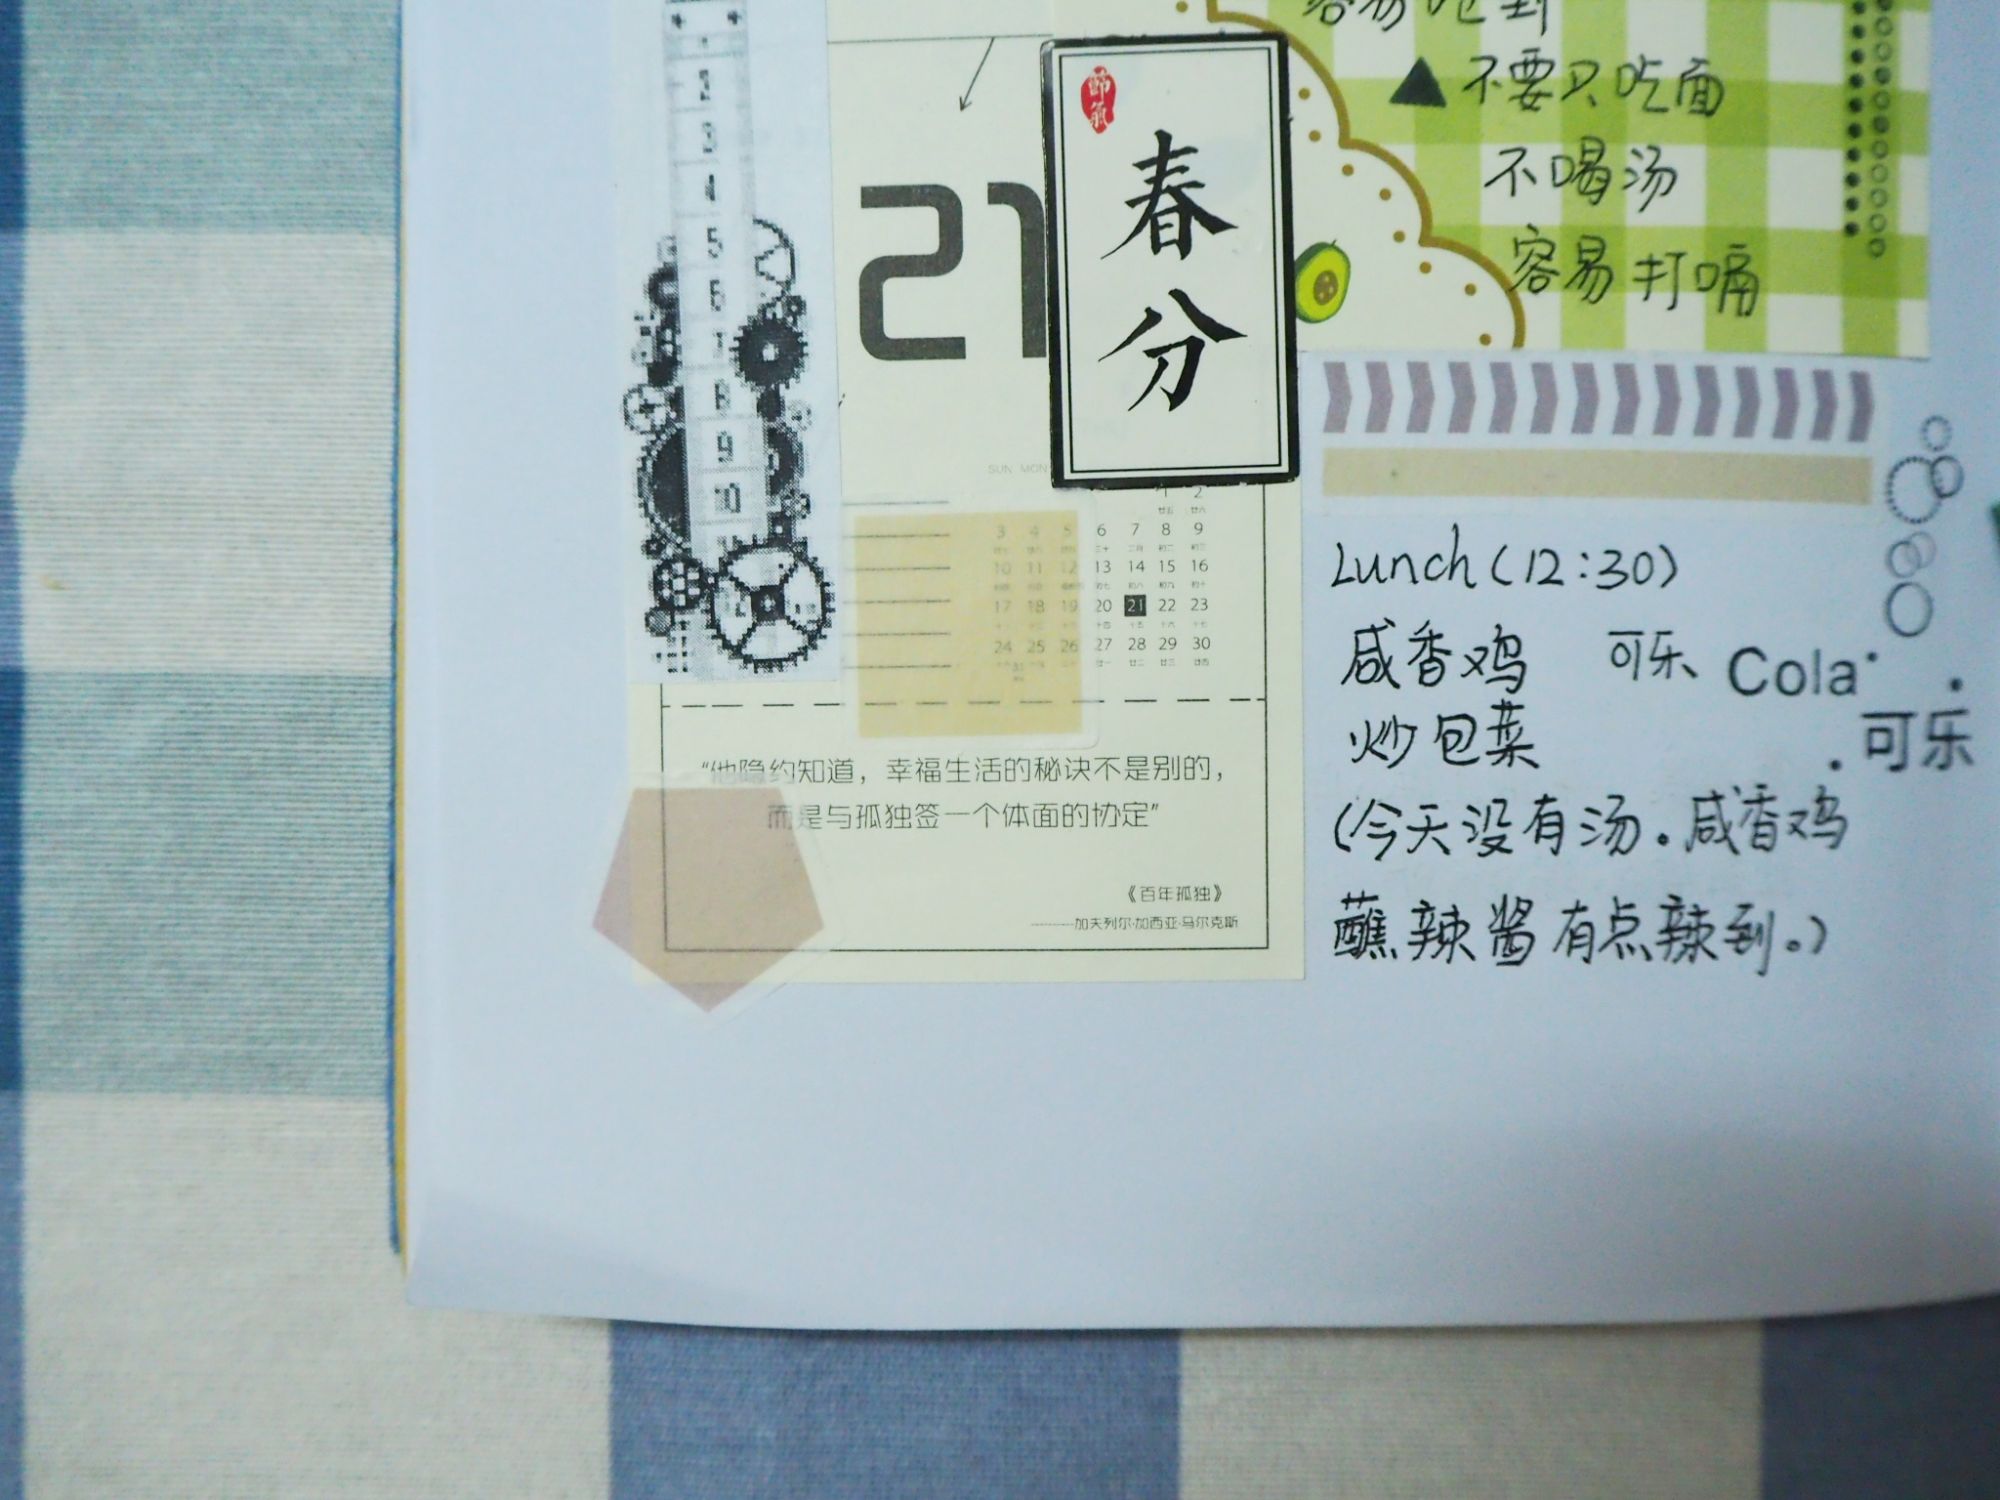 1
2
3
4
5
6
7
8
9
10
21
節氣
春分
容易吃到
▲不要只吃面
不喝汤
容易打嗝
SUN MON
1 2
廿五 廿六
3 4 5 6 7 8 9
10 11 12 13 14 15 16
17 18 19 20 21 22 23
24 25 26 27 28 29 30
31
“他隐约知道，幸福生活的秘诀不是别的，
而是与孤独签一个体面的协定”
《百年孤独》
———加夫列尔·加西亚·马尔克斯
Lunch(12:30)
咸香鸡 可乐 Cola
可乐
炒包菜
(今天没有汤。咸香鸡
蘸辣酱有点辣到。)